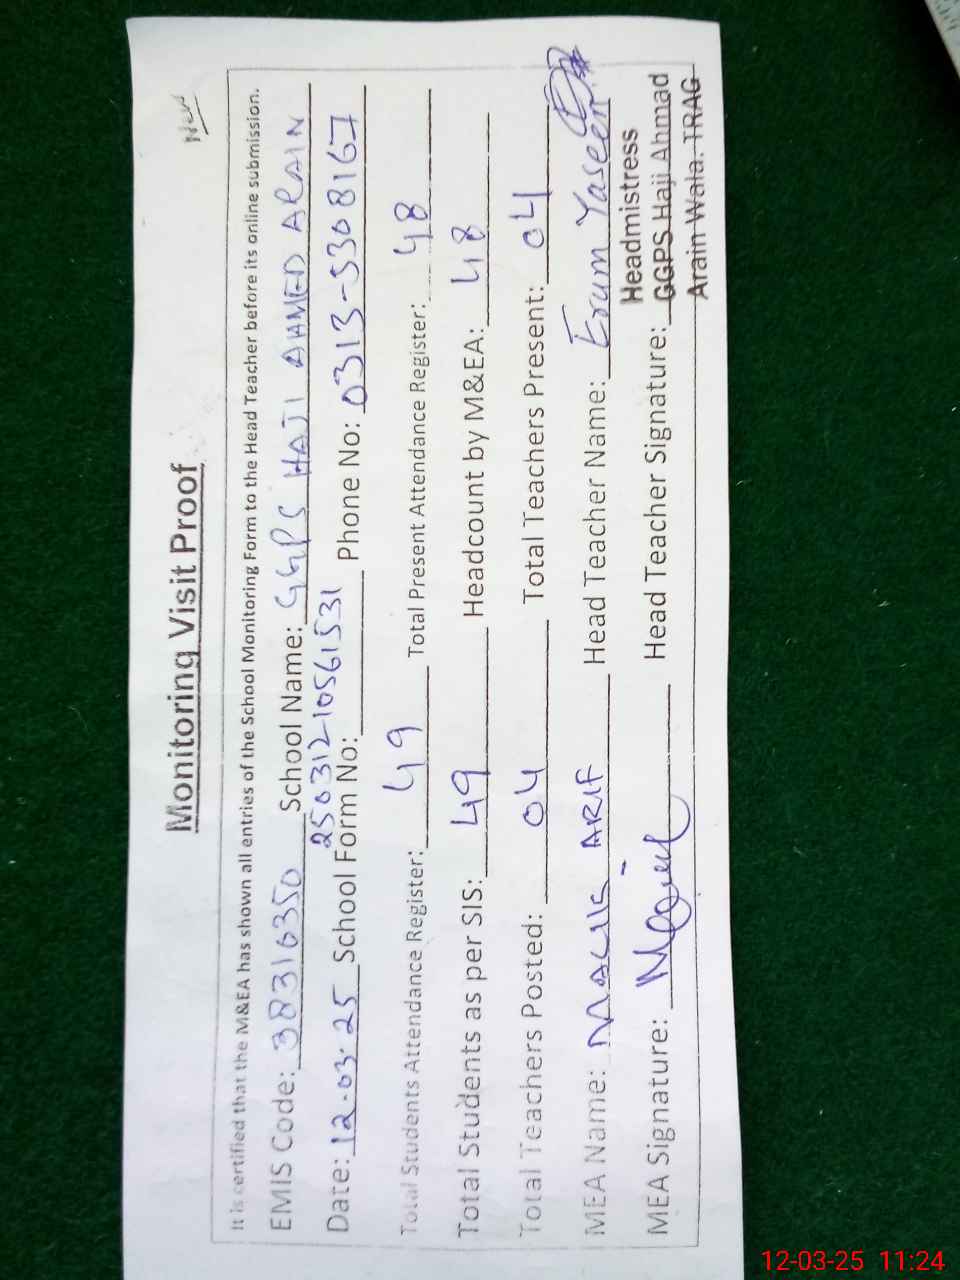 New
Monitoring Visit Proof
It is certified that the M&EA has shown all entries of the School Monitoring Form to the Head Teacher before its online submission.
EMIS Code: 38316350 School Name: GGPS HAJI AHMED ARAIN
Date: 12-03-25 School Form No: 25031210561531 Phone No: 0313-5308167
Total Students Attendance Register: 49 Total Present Attendance Register: 48
Total Students as per SIS: 49 Headcount by M&EA: 48
Total Teachers Posted: 04 Total Teachers Present: 04
MEA Name: MALIK ARIF Head Teacher Name: Erum Yaseen
MEA Signature: Head Teacher Signature:
Headmistress
GGPS Haji Ahmad
Arain Wala. TRAG
12-03-25 11:24